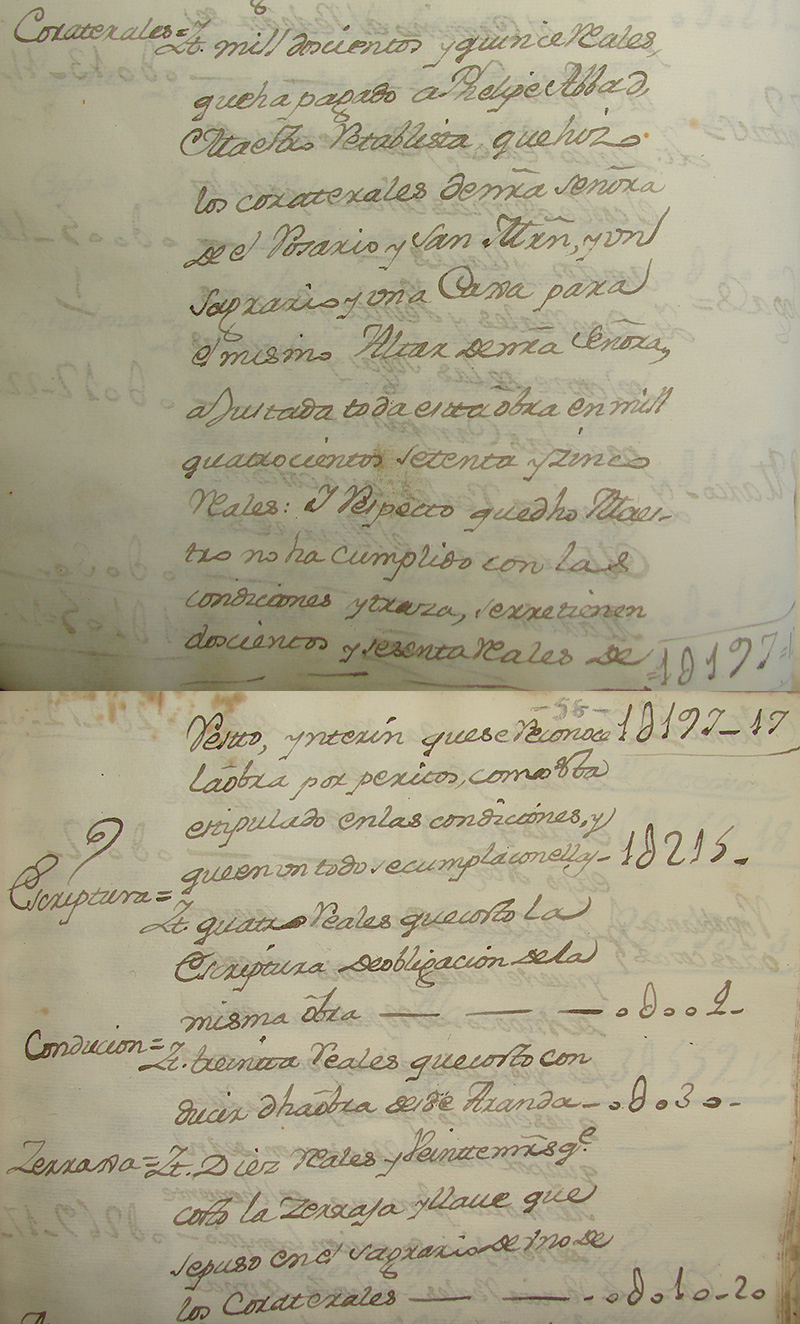 Coraterales = Yt. mill doscientos y quince Reales,
que ha pagado a Phelipe Abbad,
Maestro Retablista, que hizo
los coraterales de nra señora
de el Rosario y San Mrn, y un
sagrario y una Caxa para
el mismo Altar de nra Señora,
ajustada toda esta obra en mill
quatrocientos setenta y zinco
Reales: Y Respecto que dho Maes-
tro no ha cumplido con las
condiciones y traza, se rretienen
doscientos y sesenta Reales de
=1d197=
-56-
Resto, ynterin que se Reconoce 1d197-17
la obra por peritos, como esta
estipulado en las condiciones, y
que en un todo se cumpla con ellas - 1d215-
Escriptura = Yt. quatro Reales que costo la
Escriptura de obligación de la
misma obra — — — . d . . 4 -
Conducion = Yt. treinta Reales que costo con
ducir dha obra desde Aranda - . d . 3 o -
Zerraxa = Yt. Diez Reales y Veinte mrs qe.
costo la Zerraja y llave que
se puso en el sagrario de uno de
los Coraterales — — - . d . 1 o - 2 o